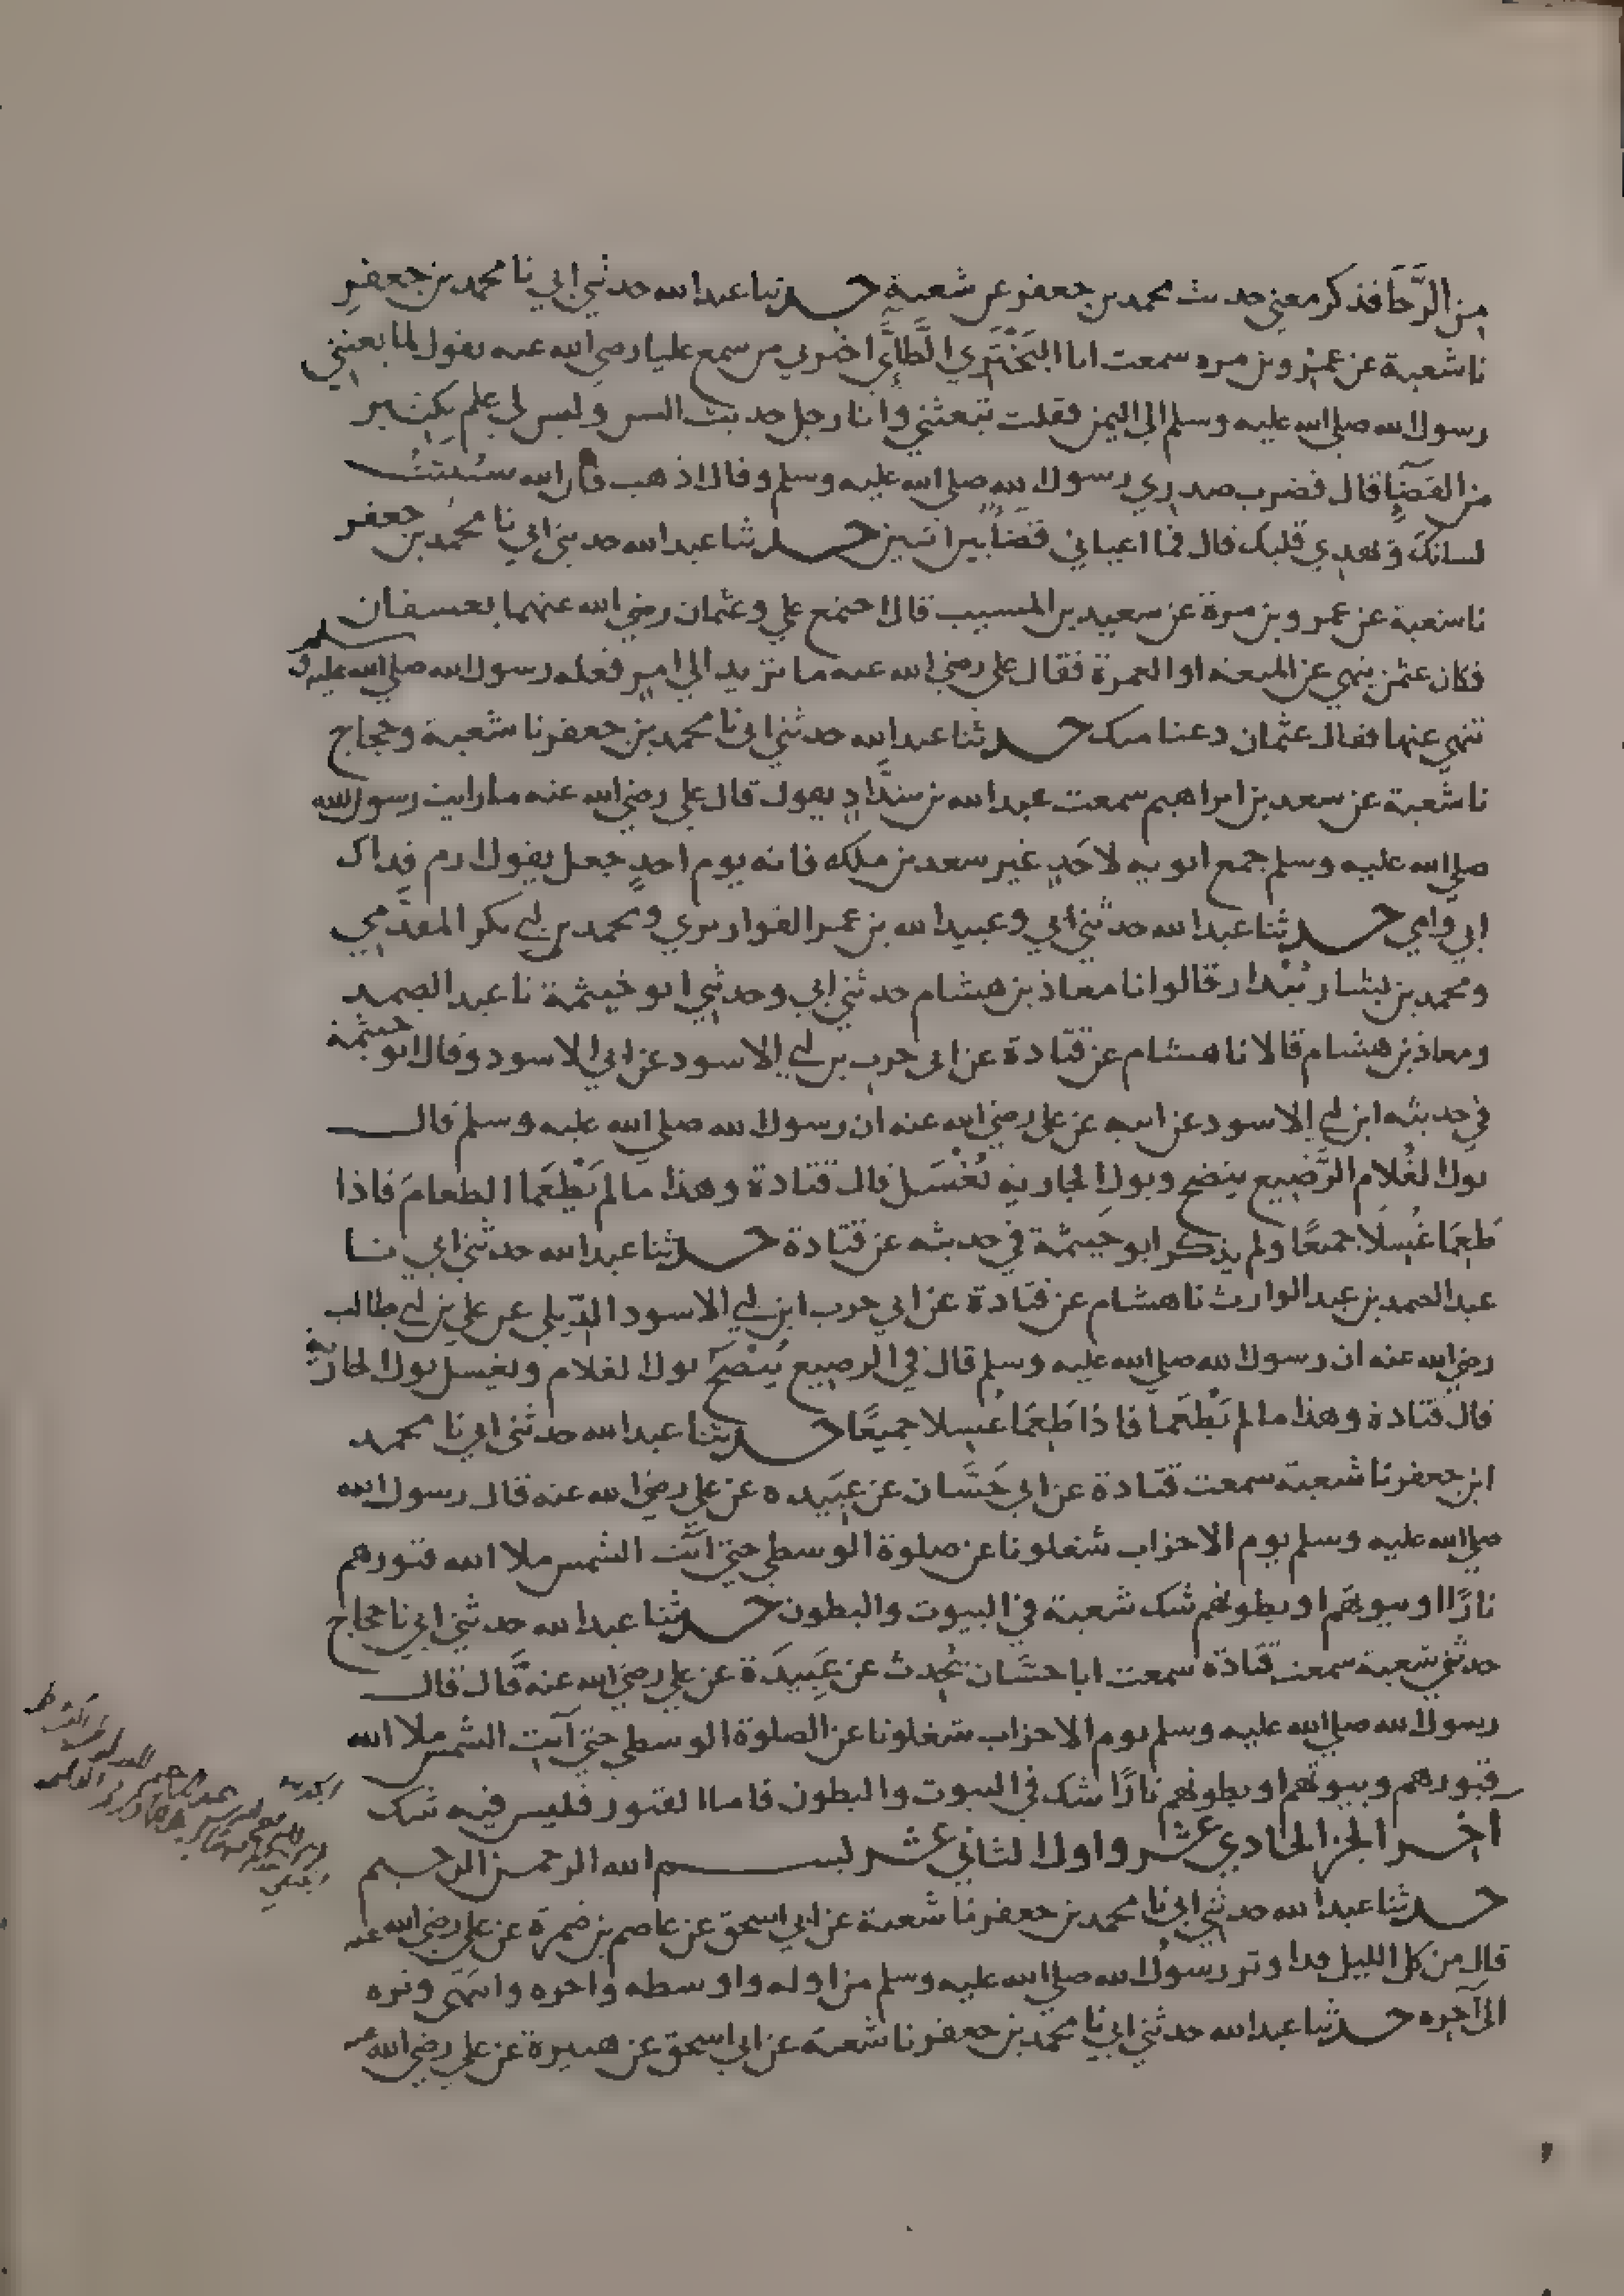 من الرَّحَا فذكر معنى حديث محمد بن جعفر عن شعبة حدثنا عبدالله حدثني ابي نا محمد بن جعفر
نا شعبة عن عمرو بن مرة سمعت ابا البَخْتَري الطائي اخبرني من سمع عليا رضي الله عنه يقول لما بعثني
رسول الله صلى الله عليه وسلم الى اليمن فقلت تبعثني وانا رجل حديث السن وليس لي علم بكثير
من القضا قال فضرب صدري رسول الله صلى الله عليه وسلم وقال اذهب فان الله سيثبت
لسانك ويهدي قلبك قال فما اعياني قضا بين اثنين حدثنا عبدالله حدثني ابي نا محمد بن جعفر
نا شعبة عن عمرو بن مرة عن سعيد بن المسيب قال اجتمع علي وعثمان رضي الله عنهما بعسفان
فكان عثمن ينهى عن المتعة او العمرة فقال علي رضي الله عنه ما تريد الى امر فعله رسول الله صلى الله عليه وسلم
تنهى عنها فقال عثمان دعنا منك حدثنا عبدالله حدثني ابي نا محمد بن جعفر نا شعبة وحجاج
نا شعبة عن سعد بن ابراهيم سمعت عبدالله بن شدَّاد يقول قال علي رضي الله عنه ما رايت رسول الله
صلى الله عليه وسلم جمع ابويه لاحَدٍ غير سعد بن ملك فانه يوم احدٍ جعل يقول ارم فداك
ابي وامي حدثنا عبدالله حدثني ابي وعبيدالله بن عمر القواريري ومحمد بن ابي بكر المقدَّمي
ومحمد بن بشار بُنْدار قالوا نا معاذ بن هشام حدثني ابي وحدثني ابو خيثمة نا عبد الصمد
ومعاذ بن هشام قالا نا هشام عن قتادة عن ابي حرب بن ابي الاسود عن ابي الاسود وقال ابو خيثمة
في حديثه ابن ابي الاسود عن ابيه عن علي رضي الله عنه ان رسول الله صلى الله عليه وسلم قال
بول الغُلام الرَّضيع ينضح وبول الجارية تُغْسَل قال قتادة وهذا ما لم يَطْعَما الطعامَ فاذا
طَعِمَا غُسِلَا جميعًا ولم يذكر ابو خيثمة في حديثه عن قتادة حدثنا عبدالله حدثني ابي نا
عبد الصمد بن عبد الوارث نا هشام عن قتادة عن ابي حرب ابن ابي الاسود الدّيلي عن علي بن ابي طالب
رضي الله عنه ان رسول الله صلى الله عليه وسلم قال في الرضيع يُنْضَحُ بول الغلام ويغسل بول الجارية
قال قتادة وهذا ما لم يَطْعَما فاذا طَعِمَا غُسِلا جميعًا حدثنا عبدالله حدثني ابي نا محمد
ابن جعفر نا شعبة سمعت قتادة عن ابي حَسَّان عن عَبِيدة عن علي رضي الله عنه قال رسول الله
صلى الله عليه وسلم يوم الاحزاب شغلونا عن صلوة الوسطي حتى آبت الشمس ملا الله قبورهم
نارًا او بيوتهم او بطونهم شك شعبة في البيوت والبطون حدثنا عبدالله حدثني ابي نا حجاج
حدثني شعبة سمعت قتادة سمعت ابا حسَّان يُحدث عن عَبِيدَة عن علي رضي الله عنه قال قال
رسول الله صلى الله عليه وسلم يوم الاحزاب شغلونا عن الصلوة الوسطي حتى آبت الشمس ملا الله
قبورهم وبيوتهم او بطونهم نارًا شك في البيوت والبطون فاما القبور فليس فيه شك
آخر الجز الحادي عشر واول الثاني عشر بسم الله الرحمن الرحيم
حدثنا عبدالله حدثني ابي نا محمد بن جعفر نا شعبة عن ابي اسحق عن عاصم بن ضمرة عن علي رضي الله عنه
قال من كل الليل قد اوتر رسول الله صلى الله عليه وسلم من اوله واوسطه واخره وانتهى وتره
الى آخره حدثنا عبدالله حدثني ابي نا محمد بن جعفر نا شعبة عن ابي اسحق عن هبيرة عن علي رضي الله عنه